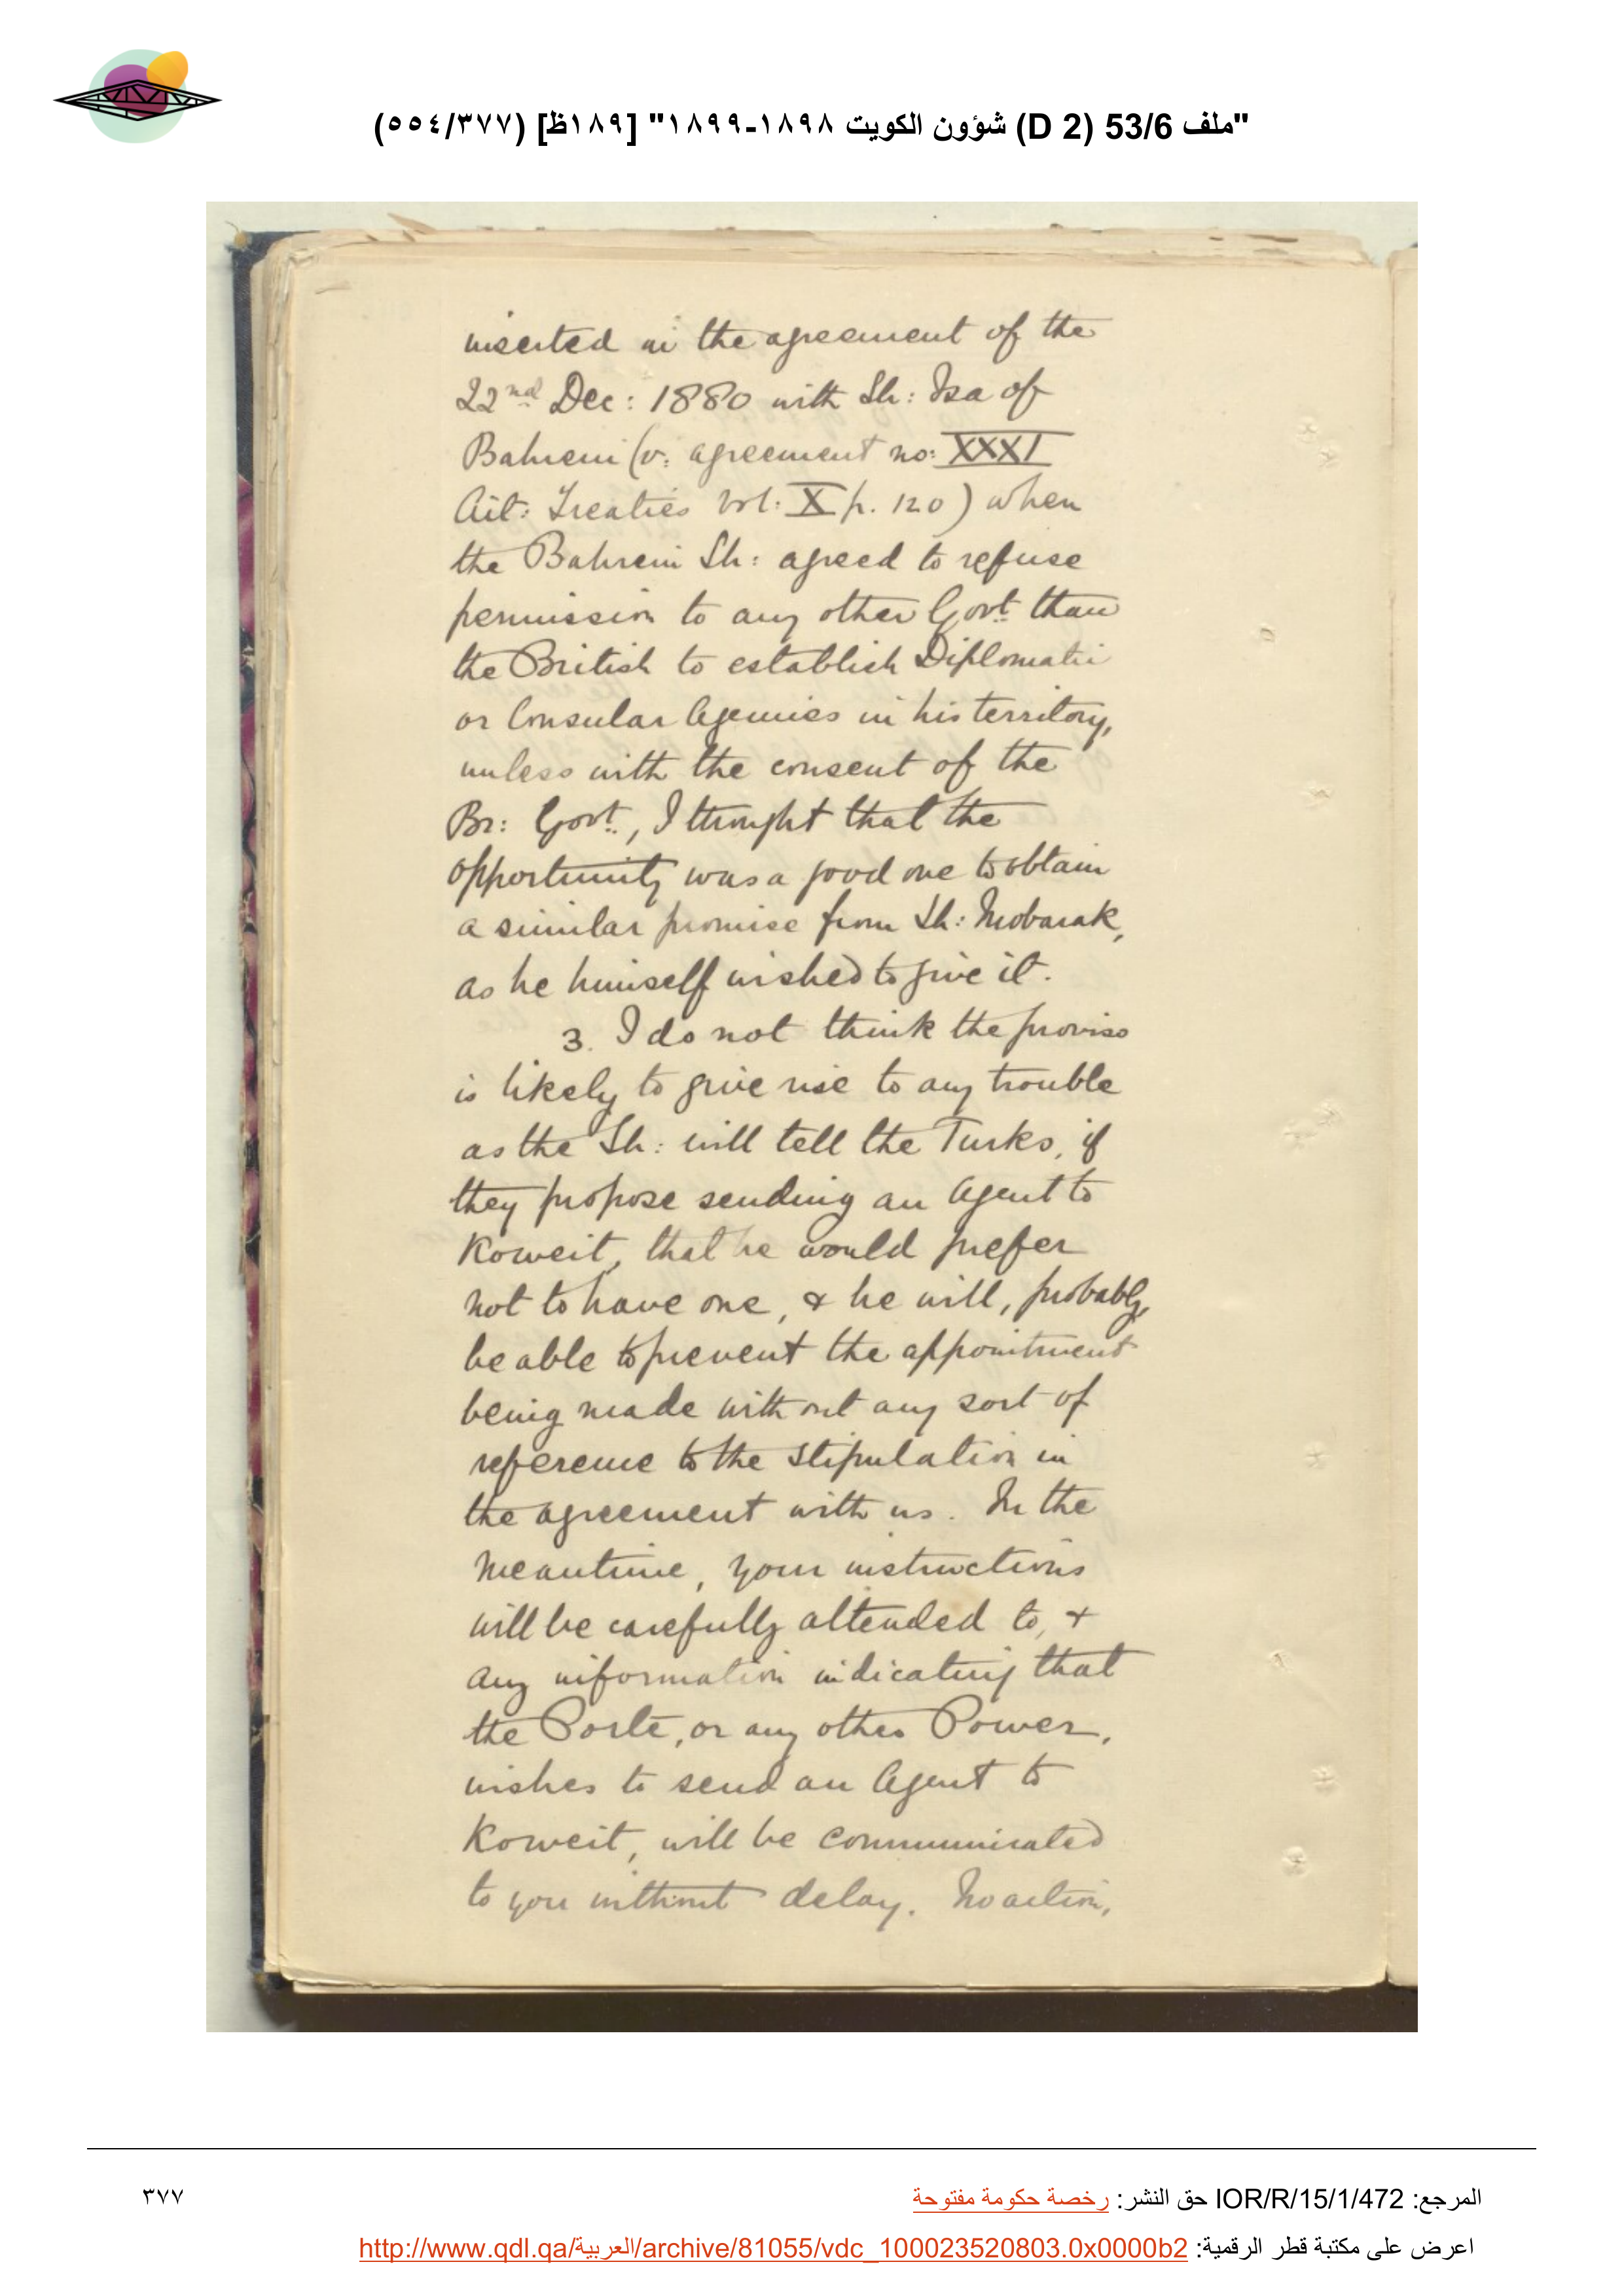 "ملف 53/6 (D 2) شؤون الكويت ١٨٩٨-١٨٩٩" [١٨٩ظ] (٥٥٤/٣٧٧)
inserted in the agreement of the
22nd Dec: 1880 with Sh: Isa of
Bahrein (v: agreement no: XXXI
Ait: Treaties Vol: X p. 120) when
the Bahrein Sh: agreed to refuse
permission to any other Govt. than
the British to establish Diplomatic
or Consular Agencies in his territory,
unless with the consent of the
Br: Govt., I thought that the
opportunity was a good one to obtain
a similar promise from Sh: Mobarak,
as he himself wished to give it.
3. I do not think the proviso
is likely to give rise to any trouble
as the Sh: will tell the Turks, if
they propose sending an Agent to
Koweit, that he would prefer
not to have one, & he will, probably,
be able to prevent the appointment
being made without any sort of
reference to the stipulation in
the agreement with us. In the
meantime, your instructions
will be carefully attended to, &
any information indicating that
the Porte, or any other Power,
wishes to send an Agent to
Koweit, will be communicated
to you without delay. No action,
المرجع: IOR/R/15/1/472 حق النشر: رخصة حكومة مفتوحة
٣٧٧
اعرض على مكتبة قطر الرقمية: http://www.qdl.qa/العربية/archive/81055/vdc_100023520803.0x0000b2